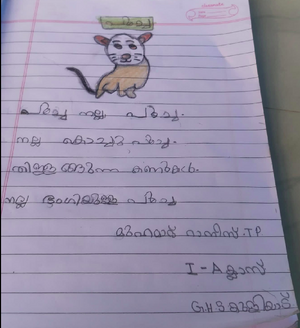 പൂച്ച
പൂച്ച നല്ല പൂച്ച.
നല്ല കൊച്ചു പൂച്ച.
തിളങ്ങുന്ന കണ്ണുകൾ.
നല്ല ഭംഗിയുള്ള പൂച്ച
മുഹമ്മദ് .TP
I-A ക്ലാസ്
GHS